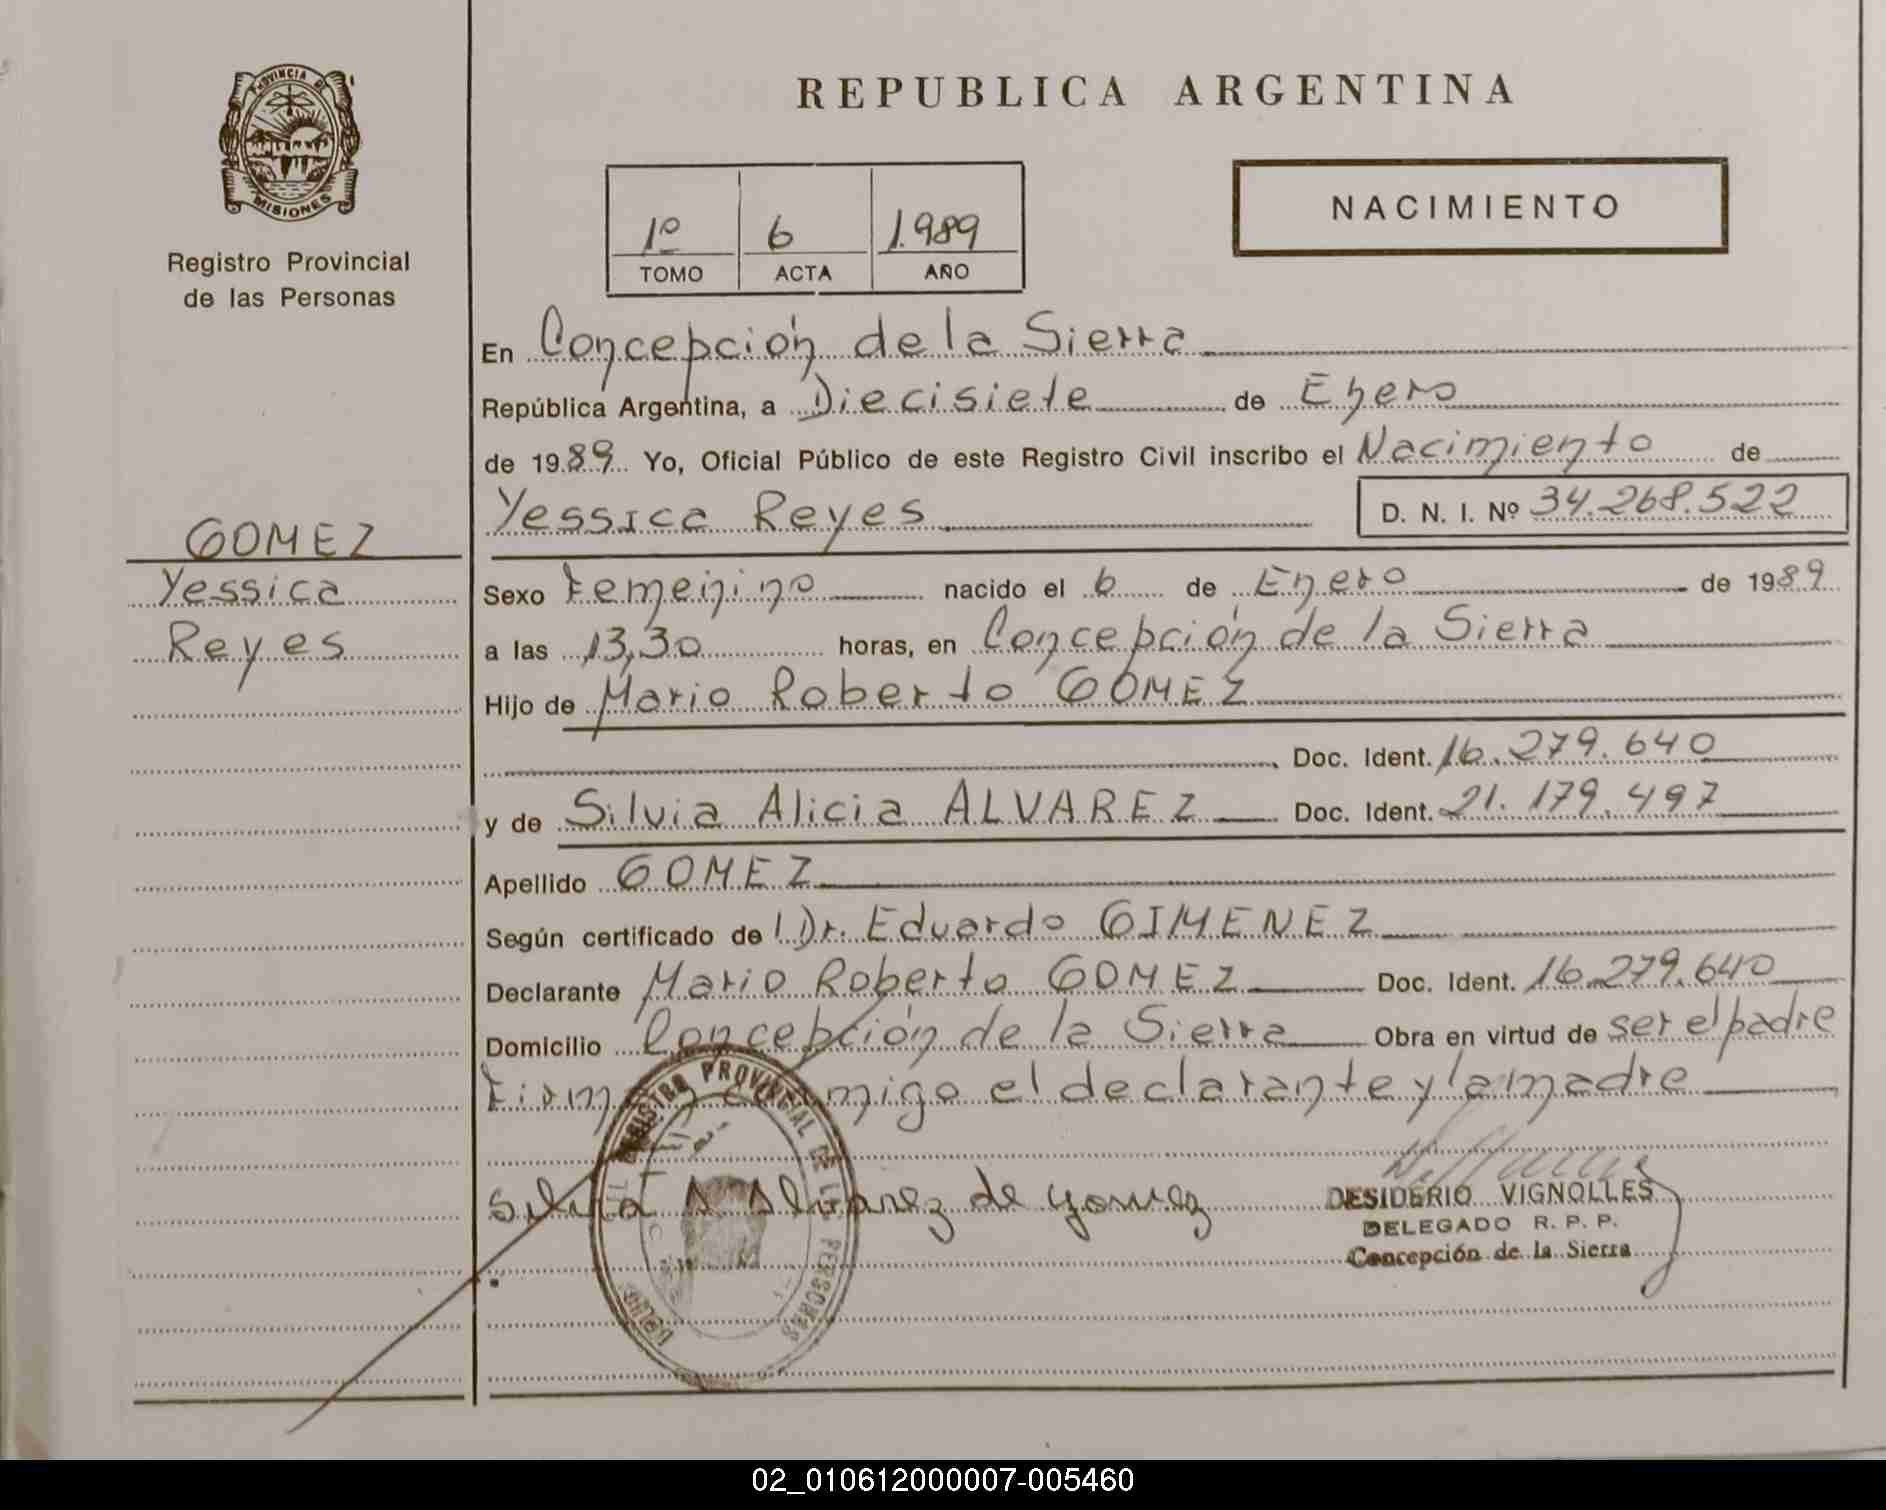 PROVINCIA DE
MISIONES
Registro Provincial
de las Personas
REPUBLICA ARGENTINA
1º 6 1.989
TOMO ACTA AÑO
NACIMIENTO
En Concepción de la Sierra
República Argentina, a Diecisiete de Enero
de 1989 Yo, Oficial Público de este Registro Civil inscribo el Nacimiento de
Yessica Reyes D. N. I. Nº 34.268.522
GOMEZ
Yessica
Reyes
Sexo Femenino nacido el 6 de Enero de 1989
a las 13,30 horas, en Concepción de la Sierra
Hijo de Mario Roberto GOMEZ
Doc. Ident. 16.279.640
y de Silvia Alicia ALVAREZ Doc. Ident. 21.179.497
Apellido GOMEZ
Según certificado de Dr. Eduardo GIMENEZ
Declarante Mario Roberto GOMEZ Doc. Ident. 16.279.640
Domicilio Concepción de la Sierra Obra en virtud de ser el padre
Firman conmigo el declarante y la madre
REGISTRO PROVINCIAL DE LAS PERSONAS
Silvia A Alvarez de Gomez
DESIDERIO VIGNOLLES
DELEGADO R. P. P.
Concepción de la Sierra
02_010612000007-005460